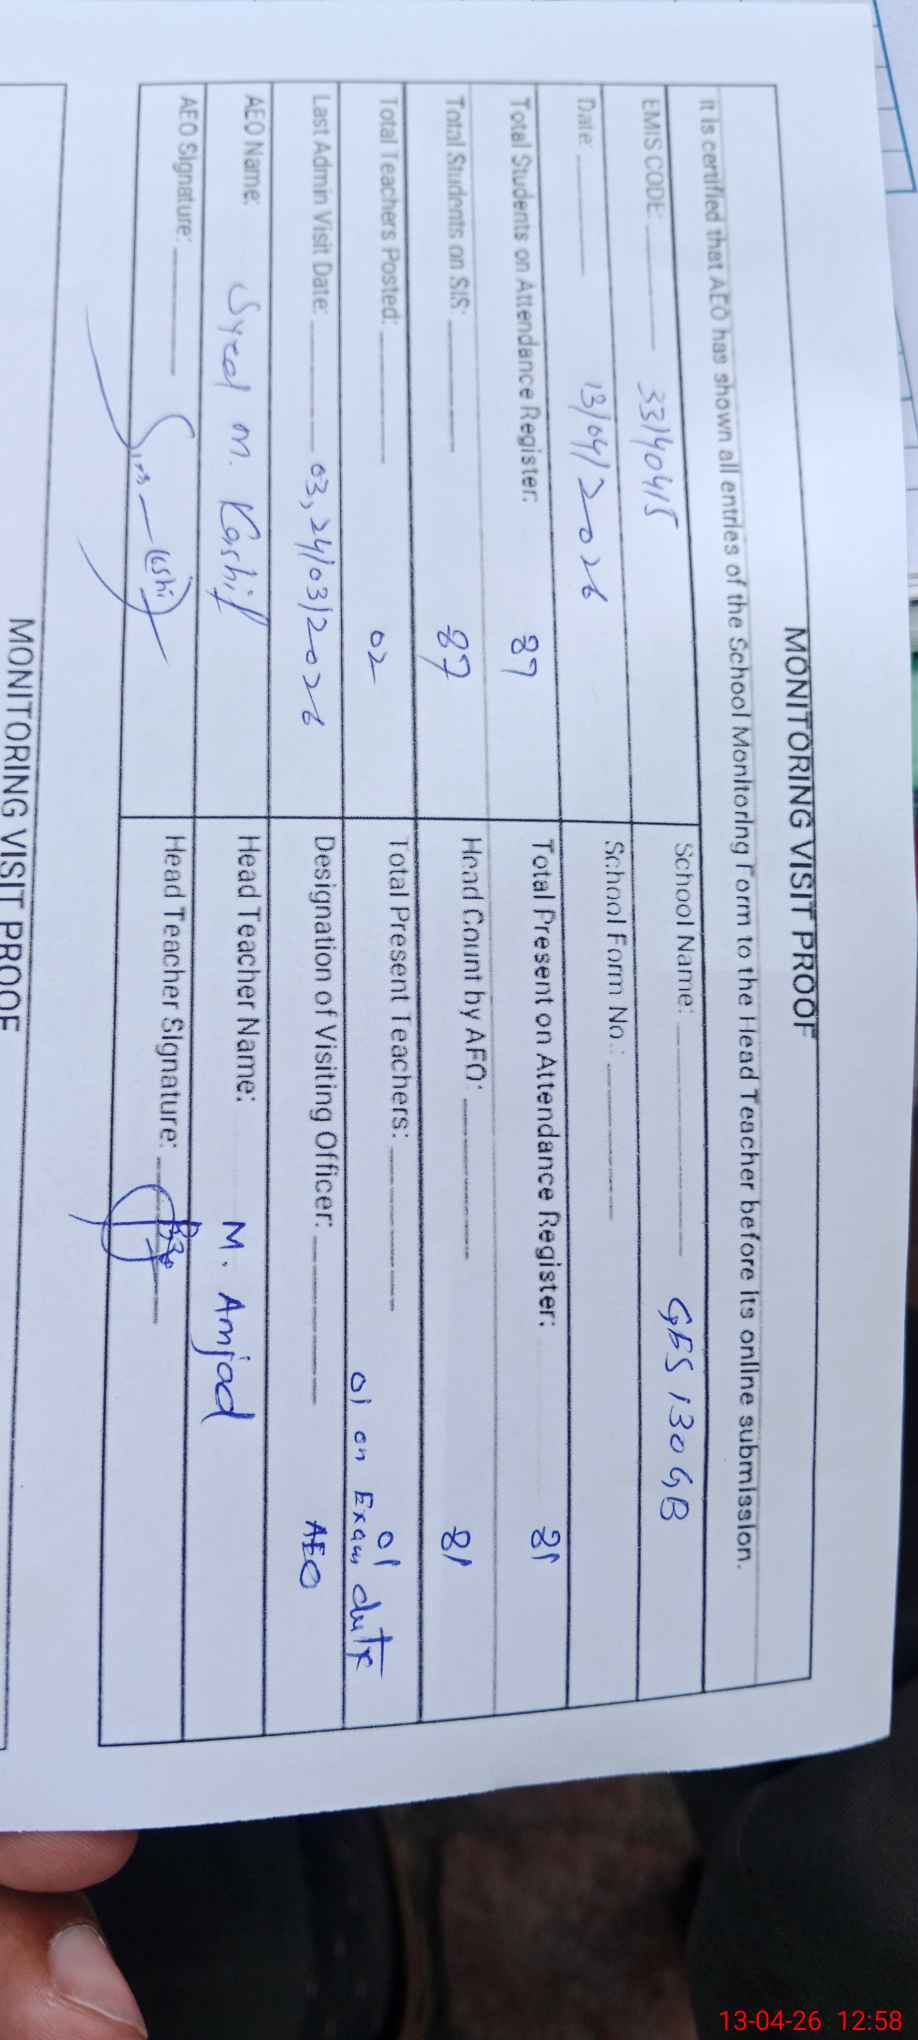 MONITORING VISIT PROOF
It is certified that AEO has shown all entries of the School Monitoring Form to the Head Teacher before its online submission.
EMIS CODE: 33140415
School Name: GES 130 GB
Date: 13/04/2026
School Form No.:
Total Students on Attendance Register: 87
Total Present on Attendance Register: 81
Total Students on SIS: 87
Head Count by AEO: 81
Total Teachers Posted: 02
Total Present Teachers: 01
01 on Exam duty
Last Admin Visit Date: 03, 24/03/2026
Designation of Visiting Officer: AEO
AEO Name: Syed M. Kashif
Head Teacher Name: M. Amjad
AEO Signature:
Head Teacher Signature:
MONITORING VISIT PROOF
13-04-26 12:58